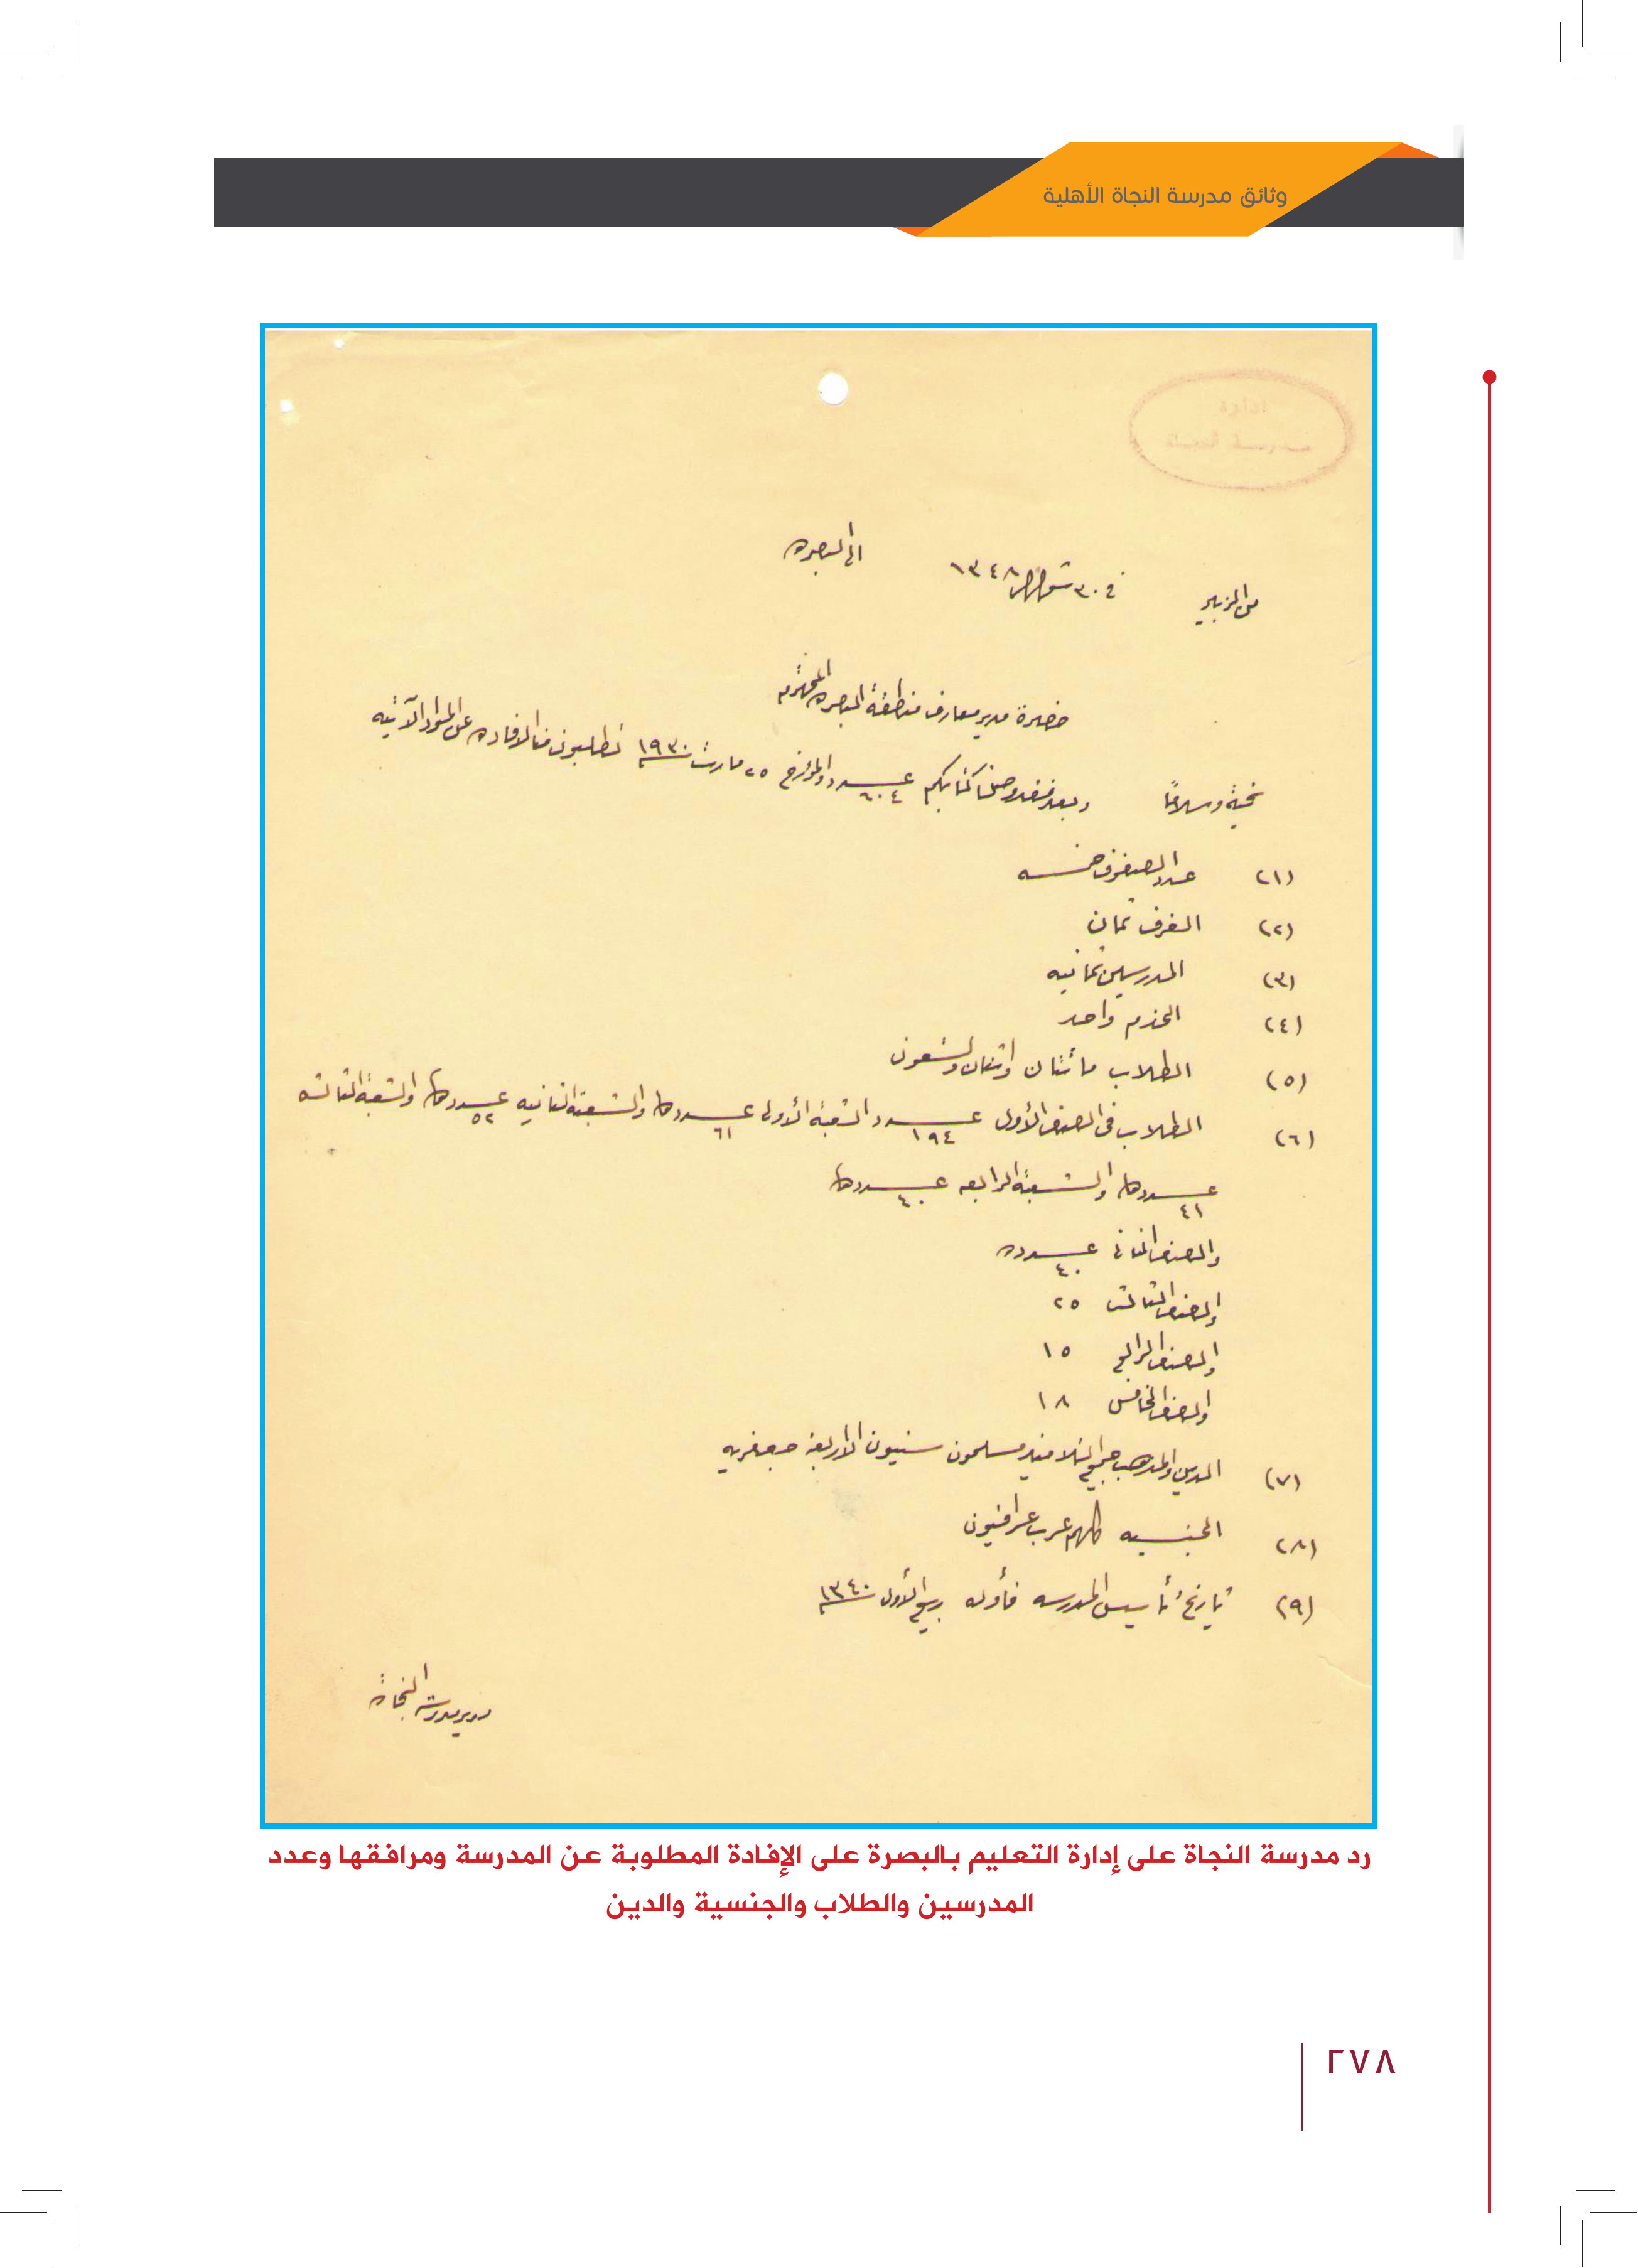 وثائق مدرسة النجاة الأهلية
ادارة
مدرسة النجاة
من الزبير في ٣٠ شوال ١٣٤٨ الى البصره
حضرة مدير معارف منطقة البصره المحترم
تحية وسلامًا وبعد فقد وصلنا كتابكم عدد ٦٠٤ والمؤرخ ٢٥ مارث ١٩٣٠ تطلبون منا الافاده عن المواد الآتيه
(١) عدد الصفوف خمسه
(٢) الغرف ثمان
(٣) المدرسين ثمانيه
(٤) الخدم واحد
(٥) الطلاب مائتان واثنان وتسعون
(٦) الطلاب في الصف الأول عدد ١٩٤ الشعبة الأولى عددها ٦١ والشعبة الثانيه عددها ٥٢ والشعبة الثالثه
عددها ٤١ والشعبة الرابعه عددها ٤٠
والصف الثاني عدده ٤٠
والصف الثالث ٢٥
والصف الرابع ١٥
والصف الخامس ١٨
(٧) الدين والمذهب جميع التلاميذ مسلمون سنيون الا اربعة جعفريه
(٨) الجنسيه كلهم عرب عراقيون
(٩) تاريخ تأسيس المدرسه فأوله ربيع الأول ١٣٤٠
مدير مدرسة النجاة
رد مدرسة النجاة على إدارة التعليم بالبصرة على الإفادة المطلوبة عن المدرسة ومرافقها وعدد
المدرسين والطلاب والجنسية والدين
٢٧٨